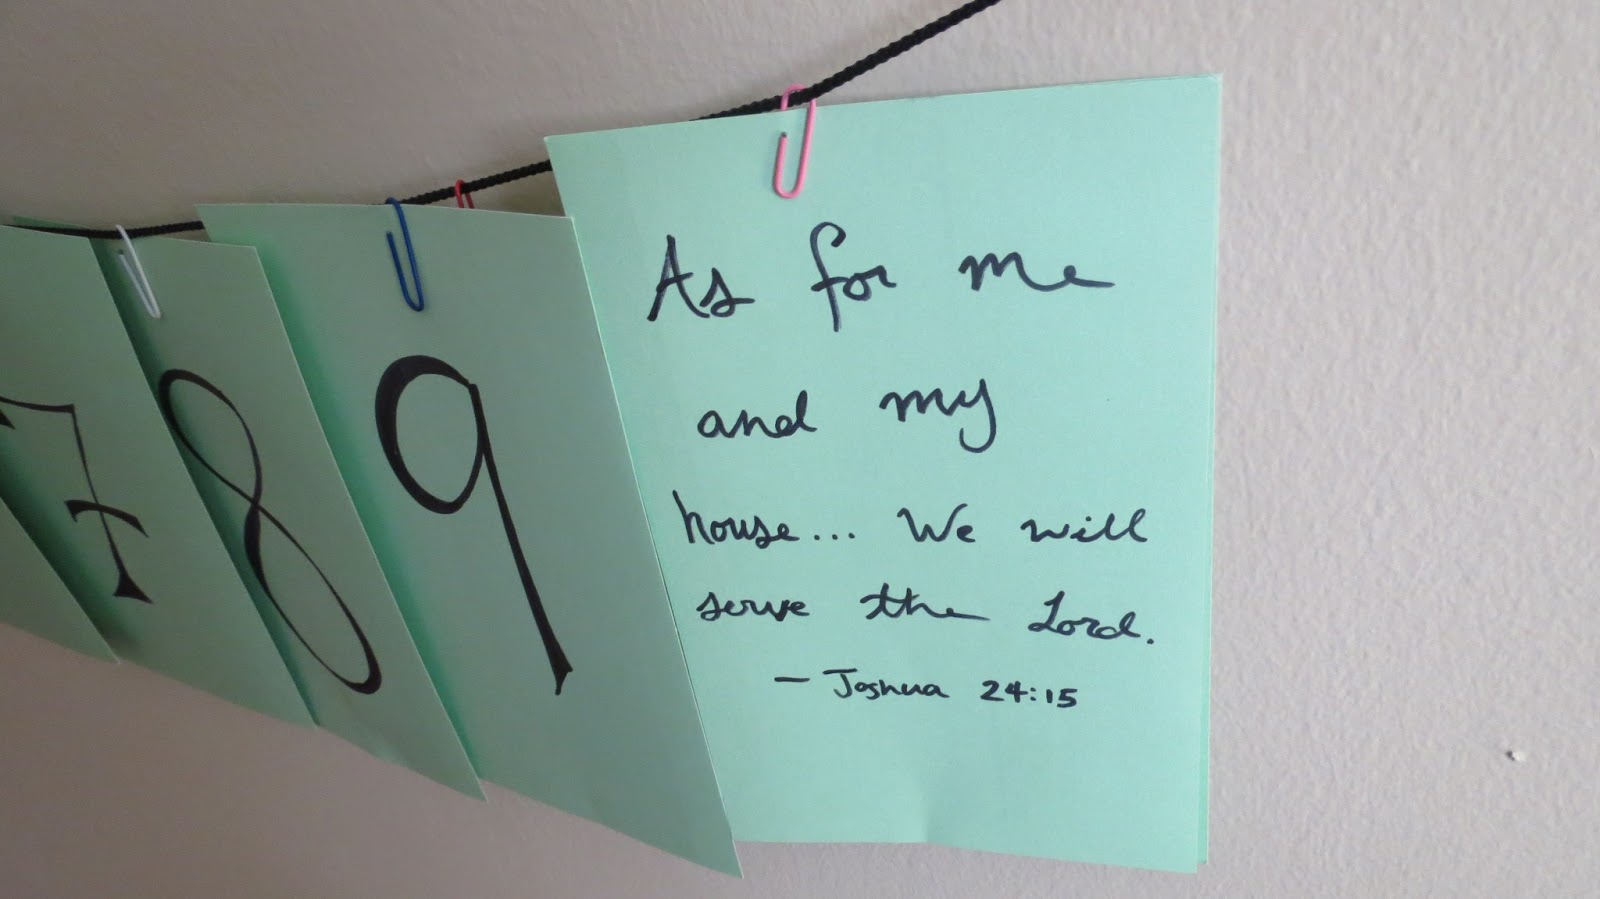 7
8
9
As for me
and my
house... We will
serve the Lord.
- Joshua 24:15